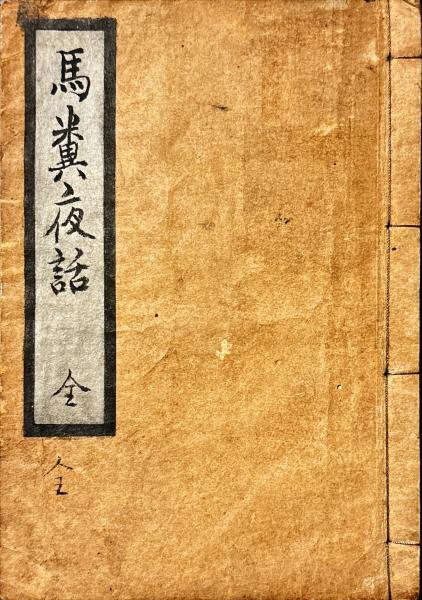 馬糞夜話 全
全